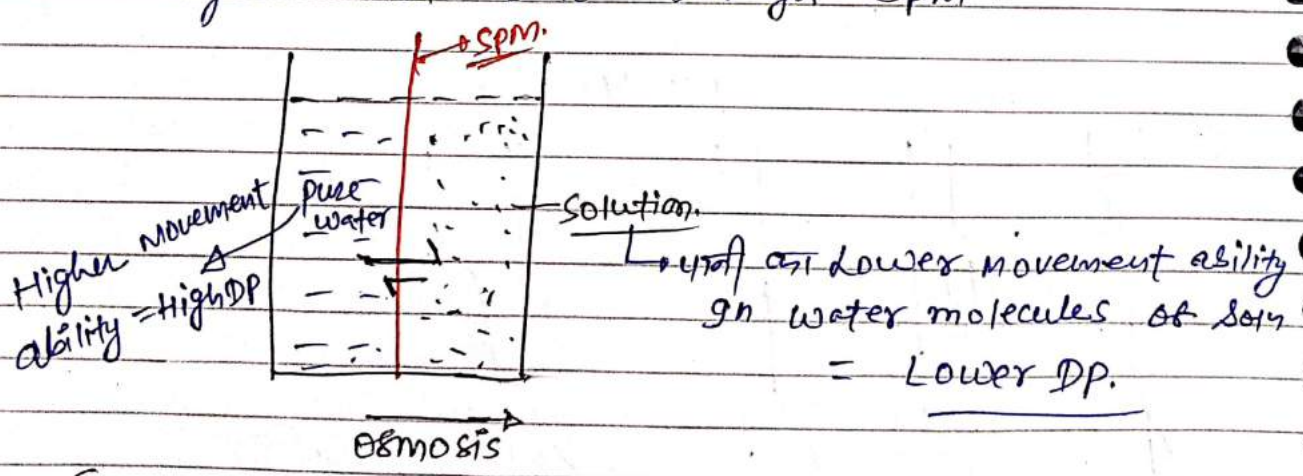 SPM.
Pure
water
Higher Movement
ability = High DP
Solution.
पानी का Lower Movement ability
In water molecules of Soln
= Lower DP.
Osmosis